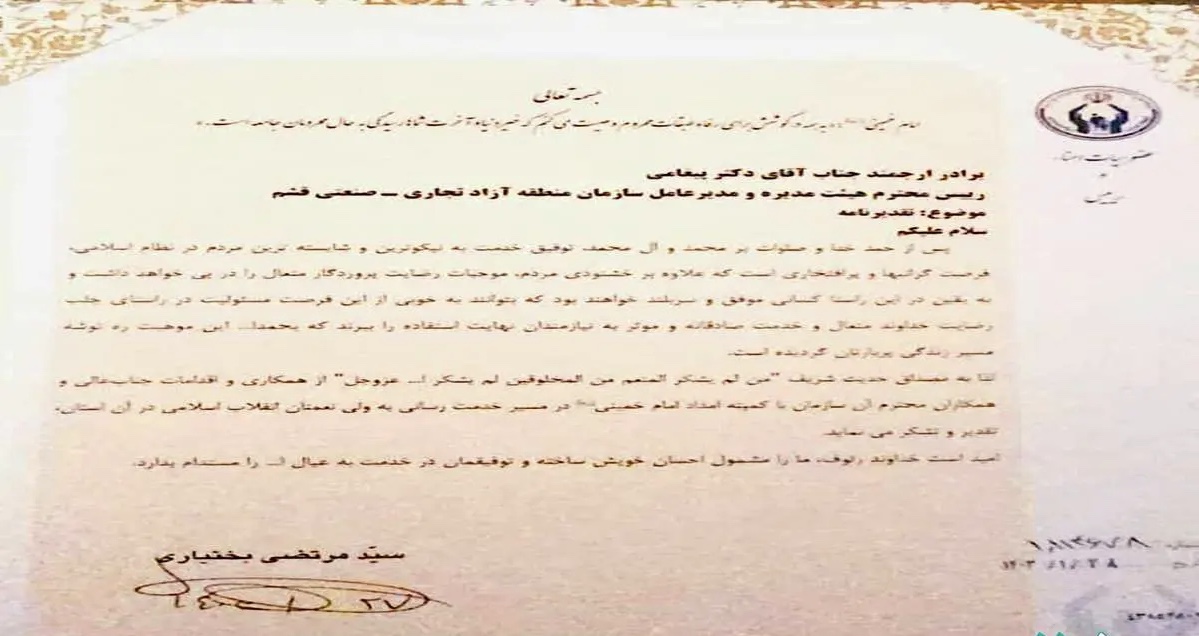 بسمه تعالی
برادر ارجمند جناب آقای دکتر پیغامی
رییس محترم هیئت مدیره و مدیرعامل سازمان منطقه آزاد تجاری – صنعتی قشم
موضوع: تقدیرنامه
سلام علیکم
پس از حمد خدا و صلوات بر محمد و آل محمد، توفیق خدمت به نیکوترین و شایسته ترین مردم در نظام اسلامی،
فرصت گرانبها و پرافتخاری است که علاوه بر خشنودی مردم، موجبات رضایت پروردگار متعال را در پی خواهد داشت و
به یقین در این راستا کسانی موفق و سربلند خواهند بود که بتوانند به خوبی از این فرصت مسئولیت در راستای جلب
رضایت خداوند متعال و خدمت صادقانه و موثر به نیازمندان نهایت استفاده را ببرند که بحمدا... این موهبت ره توشه
مسیر زندگی پربارتان گردیده است.
لذا به مصداق حدیث شریف "من لم یشکر المنعم من المخلوقین لم یشکر ا... عزوجل" از همکاری و اقدامات جنابعالی و
همکاران محترم آن سازمان با کمیته امداد امام خمینی در مسیر خدمت رسانی به ولی نعمتان انقلاب اسلامی در آن استان،
تقدیر و تشکر می نماید.
امید است خداوند رئوف، ما را مشمول احسان خویش ساخته و توفیقمان در خدمت به عیال ا... را مستدام بدارد.
سیّد مرتضی بختیاری